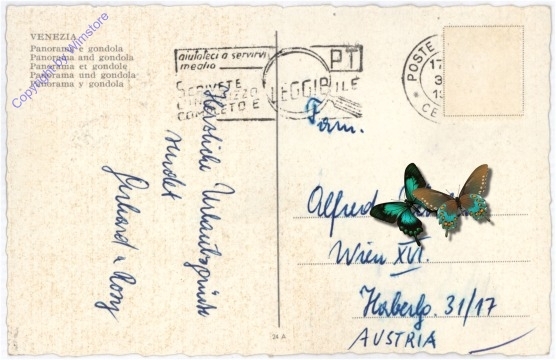 VENEZIA
Panorama e gondola
Panorama and gondola
Panorama et gondole
Panorama und gondola
Panorama y gondola
Copyright by Wimstore
aiutateci a servirvi
meglio
SCRIVETE
L'INDIRIZZO
COMPLETO E LEGGIBILE
PT
POSTE
17
Herzliche Urlaubsgrüsse
sendet
Gerhard u Rosy
Fam.
Alfred
Wien XVI.
Haberlg. 31/17
AUSTRIA
24 A